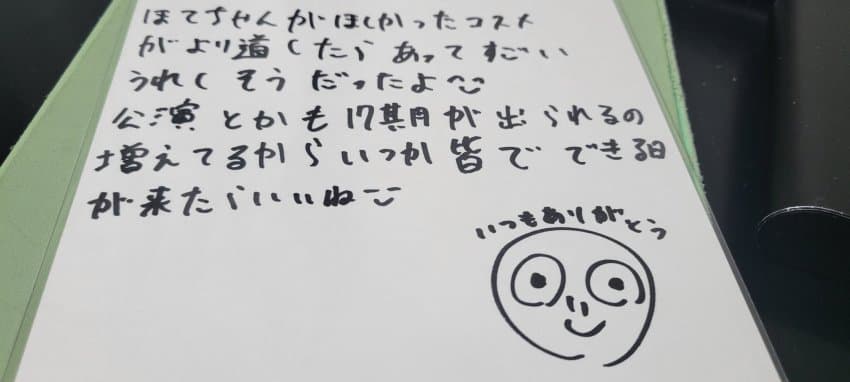 ほてちゃんがほしかったコスト
がより道したらあってすごい
うれしそうだったよ
公演とかも17期が出られるの
増えてるからいつか皆でできる日
が来たらいいね
いつもありがとう